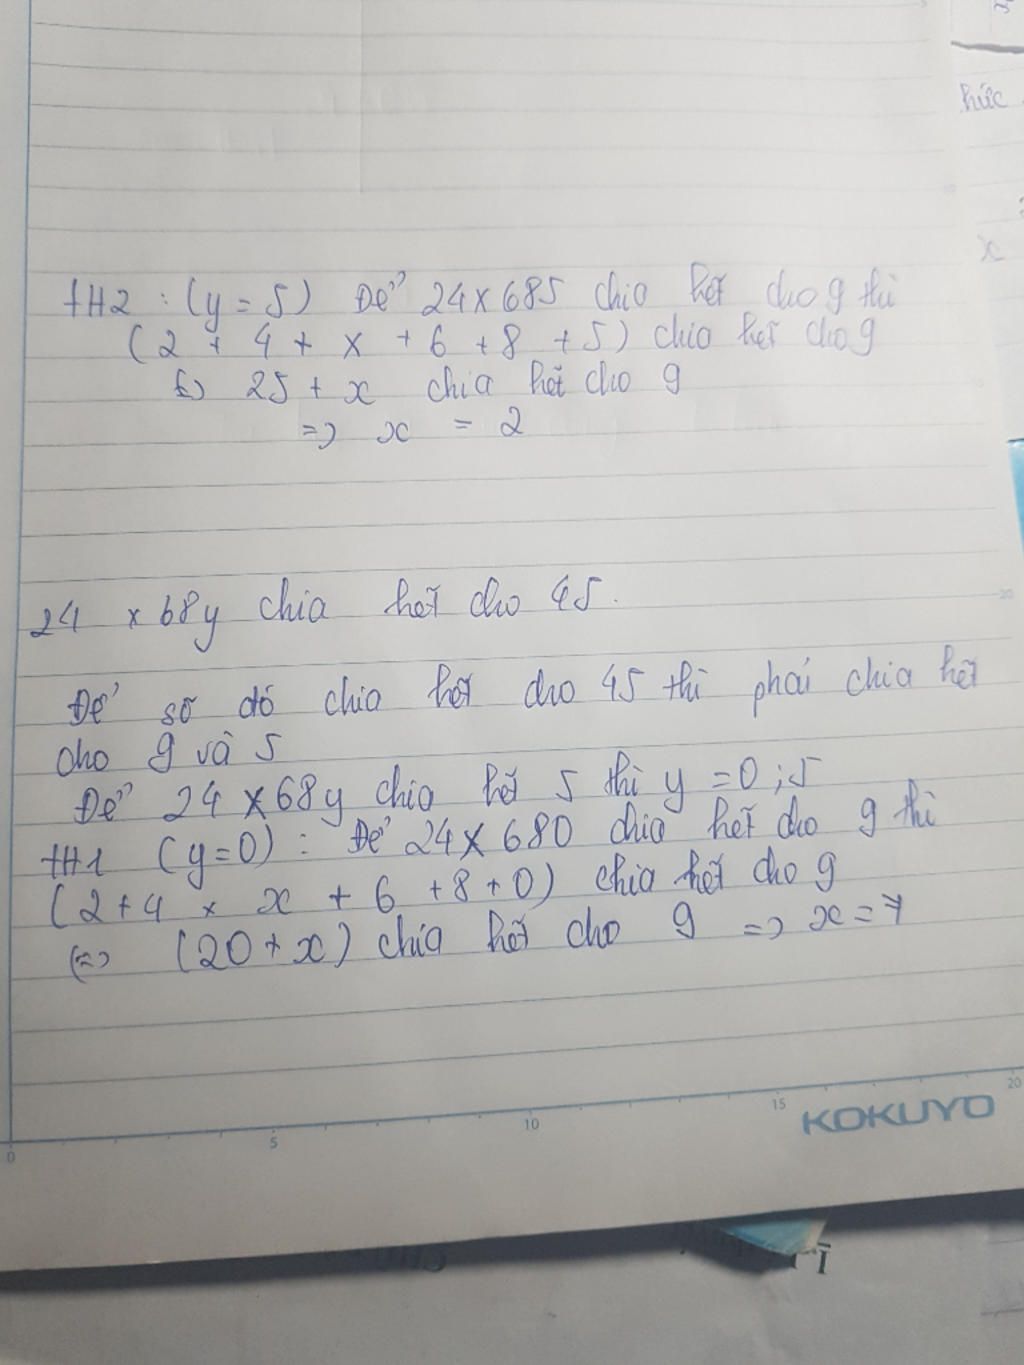 hức
x
tH2 : (y = 5) Để 24x685 chia hết cho 9 thì
(2 + 4 + x + 6 + 8 + 5) chia hết cho 9
(=) 25 + x chia hết cho 9
=> x = 2
24 x68y chia hết cho 45.
Để số đó chia hết cho 45 thì phải chia hết
cho 9 và 5
Để 24x68y chia hết 5 thì y = 0 ; 5
tH1 (y=0) : Để 24x680 chia hết cho 9 thì
(2 + 4 + x + 6 + 8 + 0) chia hết cho 9
(=> (20 + x) chia hết cho 9 => x = 7
0 5 10 15 20
KOKUYO